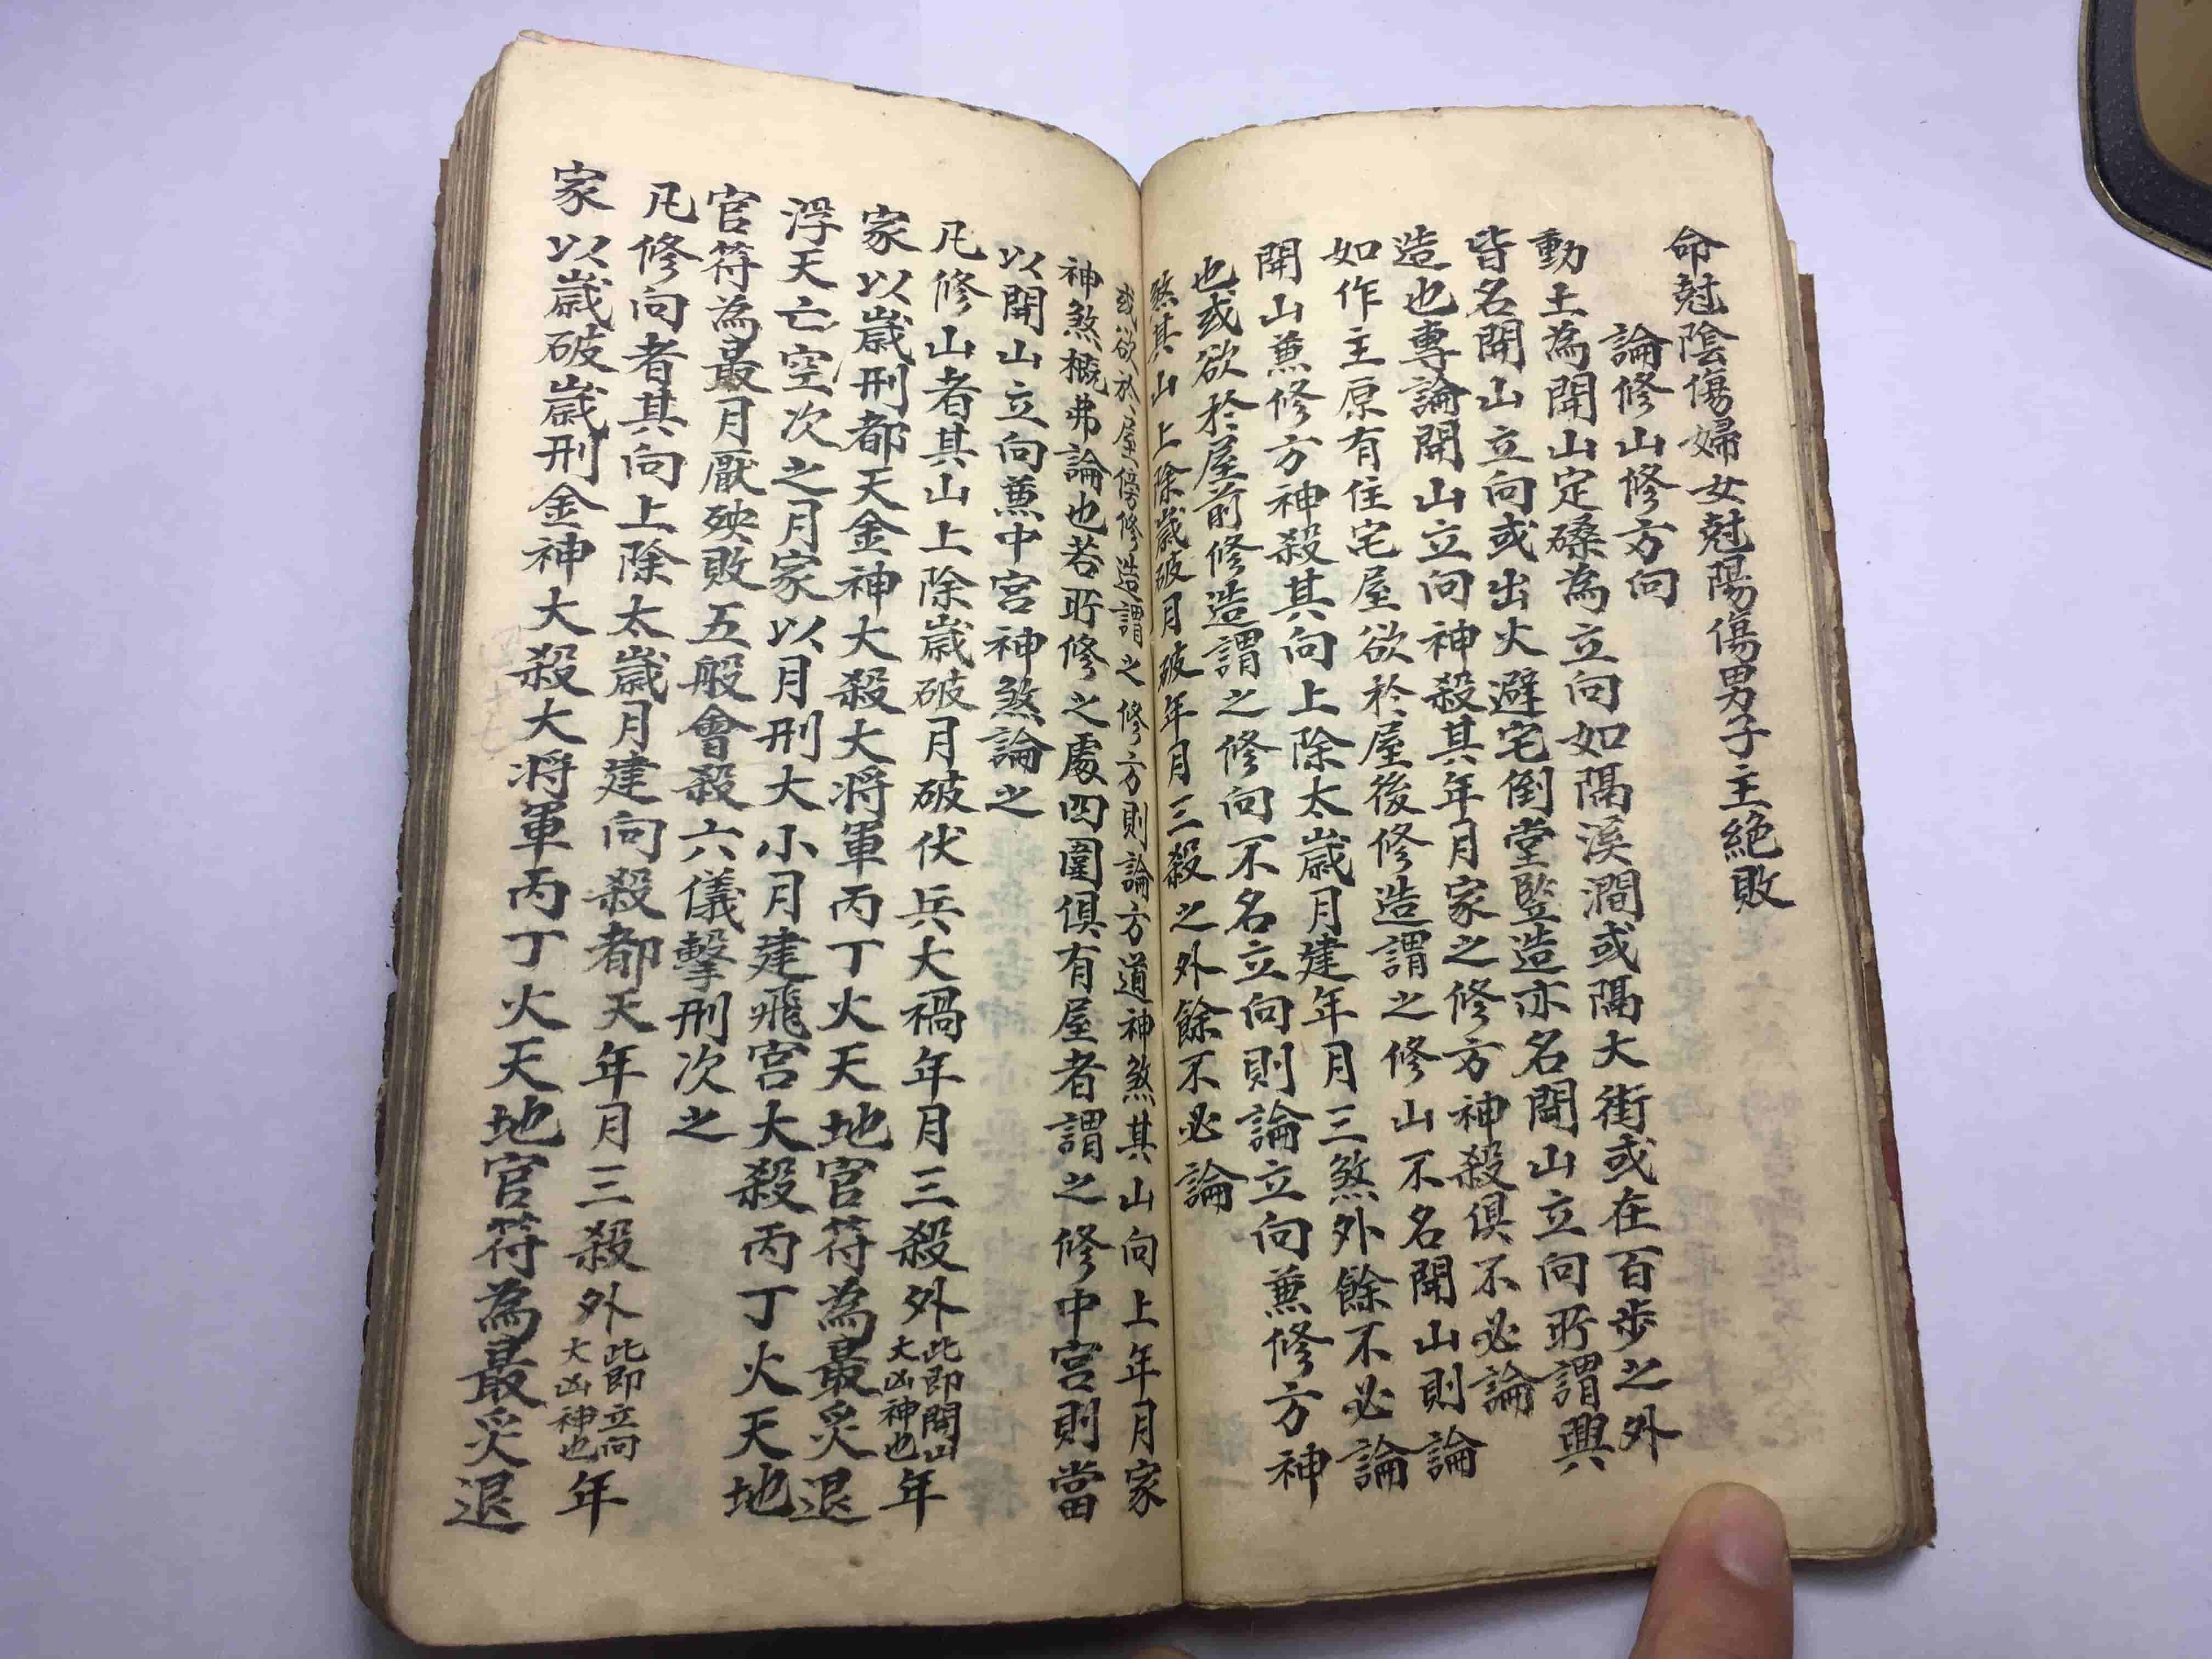 命尅陰傷婦女尅陽傷男子主絶敗
論修山修方向
動土為開山定磉為立向如隔溪澗或隔大街或在百步之外
皆名開山立向或出火避宅倒堂監造亦名開山立向所謂興
造也專論開山立向神殺其年月家之修方神殺俱不必論
如作主原有住宅屋欲於屋後修造謂之修山不名開山則論
開山兼修方神殺其向上除太歲月建年月三煞外餘不必論
也或欲於屋前修造謂之修向不名立向則論立向兼修方神
煞其山上除歲破月破年月三殺之外餘不必論
或欲於屋傍修造謂之修方則論方道神煞其山向上年月家
神煞概弗論也若所修之處四圍俱有屋者謂之修中宮則當
以開山立向兼中宮神煞論之
凡修山者其山上除歲破月破伏兵大禍年月三殺外此即開山大凶神也年
家以歲刑都天金神大殺大將軍丙丁火天地官符為最災退
浮天亡空次之月家以月刑大小月建飛宮大殺丙丁火天地
官符為最月厭殃敗五般會殺六儀擊刑次之
凡修向者其向上除太歲月建向殺都天年月三殺外此即立向大凶神也年
家以歲破歲刑金神大殺大將軍丙丁火天地官符為最災退